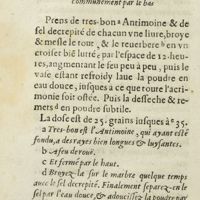 communement par le bas
Prens de tres-bon a Antimoine & de
sel decrepité de chacun vne liure, broye
& mesle le tout, & le reuerbere b en vn
croiset biē lutté par l'espace de 12. heu-
res, augmentant le feu peu à peu, puis le
vase estant refroidy laue la poudre en
eau douce, iusques à ce que toute l'acri-
monie soit ostée. Puis la desseche & re-
mets d en poudre subtile.
La dose est de 25. grains iusques à 35.
a Tres-bon est l'Antimoine, qui ayant esté
fondu, a des rayes bien longues & luysantes.
b A feu de rouë.
c Et fermé par le haut.
d Broyez-la sur le marbre quelque temps
auec le sel decrepité. Finalement separez-en le
sel par l'eau douce, & adoucissez la poudre par